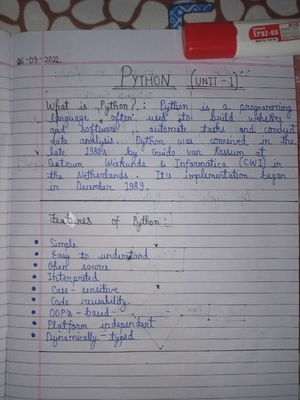 fraz-ex
06-09-2022
PYTHON (UNIT-1)
What is Python? : Python is a programming
language often used to build websites
and software, automate tasks and conduct
data analysis. Python was conceived in the
late 1980s by Guido van Rossum at
Centrum Wiskunde & Informatica (CWI) in
the Netherlands. It's implementation began
in December 1989.
Features of Python:
Simple
Easy to understand
Open source
Interpreted
Case-sensitive
Code reusability
OOP's-based
Platform independent
Dynamically-typed